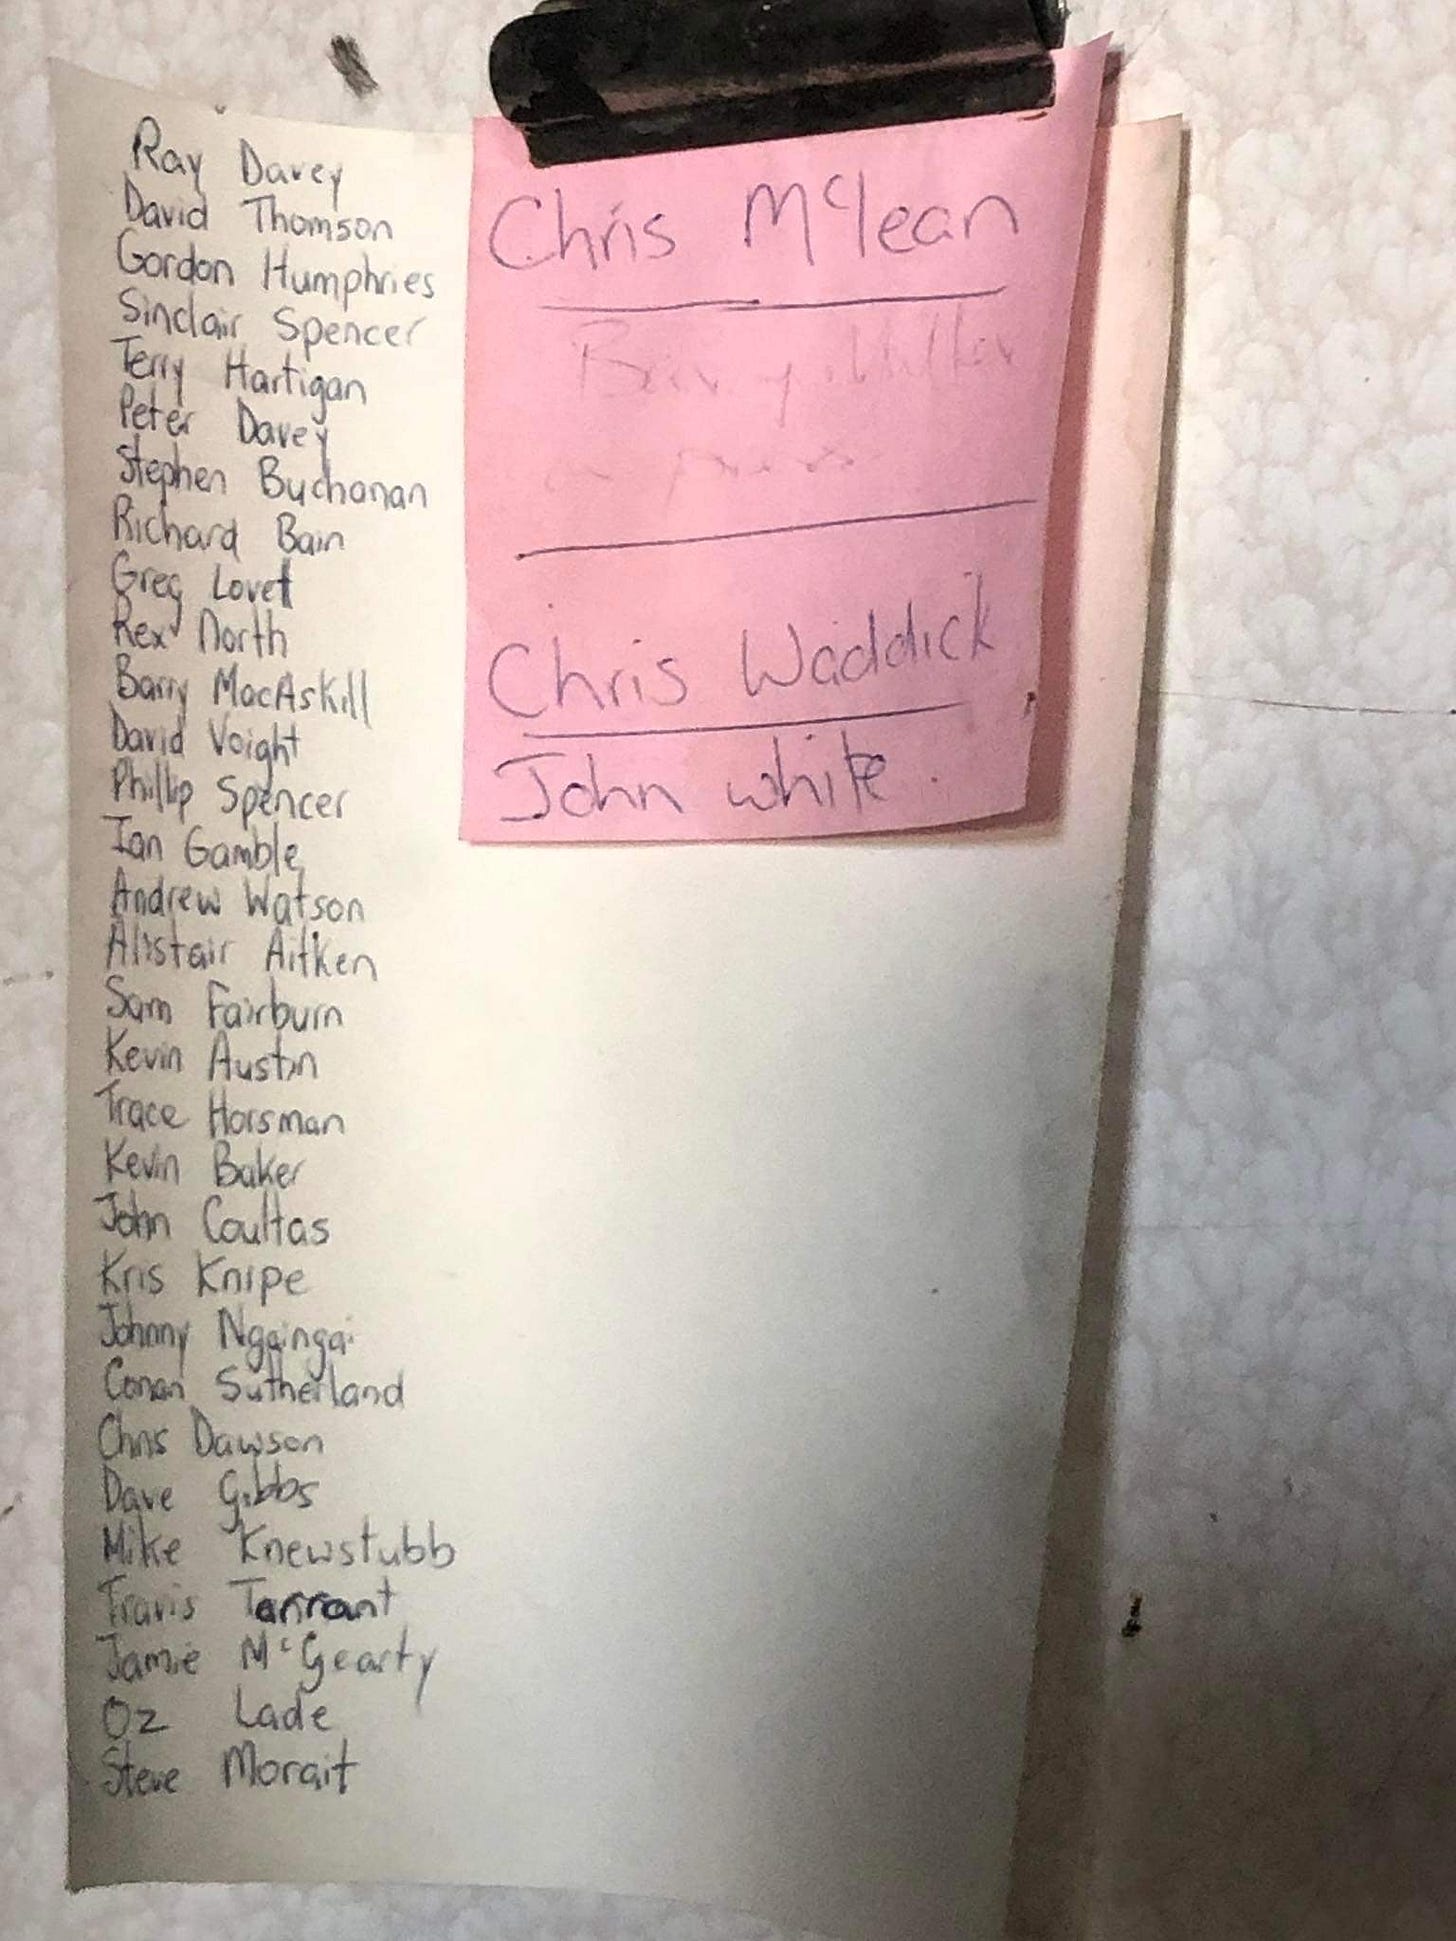 Ray Davey
David Thomson
Gordon Humphries
Sinclair Spencer
Terry Hartigan
Peter Davey
Stephen Buchanan
Richard Bain
Greg Lovet
Rex North
Barry MacAskill
David Voight
Phillip Spencer
Ian Gamble
Andrew Watson
Alistair Aitken
Sam Fairburn
Kevin Austin
Trace Horsman
Kevin Baker
John Coultas
Kris Knipe
Johnny Ngaingai
Conan Sutherland
Chris Dawson
Dave Gibbs
Mike Knewstubb
Travis Tarrant
Jamie McGearty
Oz Lade
Steve Morait
Chris McLean
Chris Waddick
John white